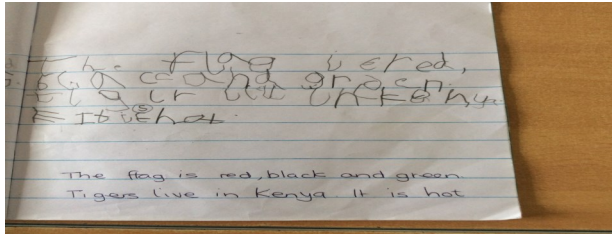 The flag is ered,
and green.
in Kenya
It is hot
The flag is red, black and green
Tigers live in Kenya It is hot